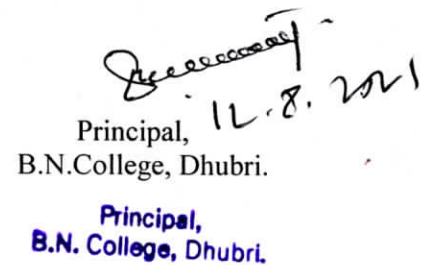 12.8.2021
Principal,
B.N.College, Dhubri.
Principal,
B.N. College, Dhubri.